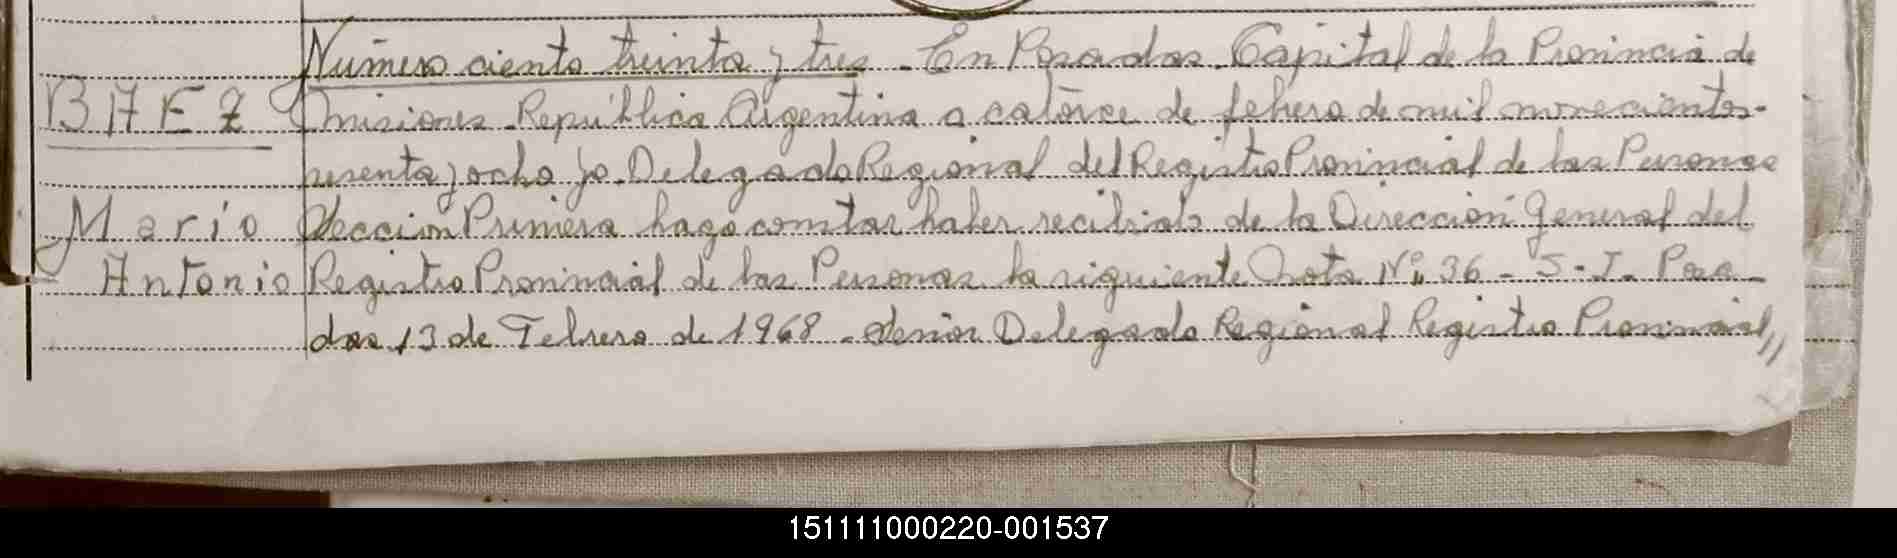 Número ciento treinta y tres. En Posadas Capital de la Provincia de
BAEZ Misiones República Argentina a catorce de febrero de mil novecientos
sesenta y ocho yo Delegado Regional del Registro Provincial de las Personas
Mario Sección Primera hago constar haber recibido de la Dirección General del
Antonio Registro Provincial de las Personas la siguiente Nota Nº 36 - S-I- Posa-
das 13 de Febrero de 1968 - Señor Delegado Regional Registro Provincial //
151111000220-001537